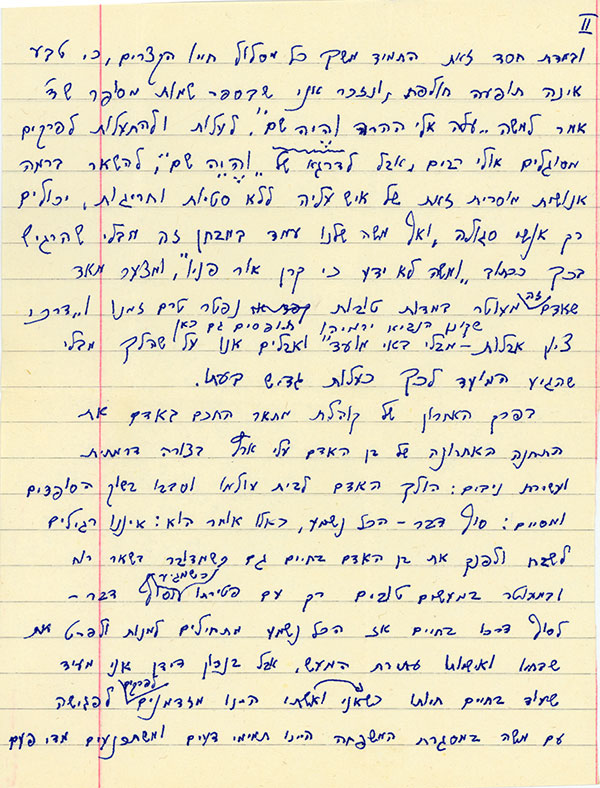 II
ובמדת חסד זאת התמיד משך כל מסלול חייו הקצרים, כי טבע
אינה תופעה חולפת, ונזכר אני שבספר שמות מסופר שד׳
אמר למשה ,,עלה אלי ההרה והיה שם״. לעלות ולהתעלות לפרקים
מסוגלים אולי רבים, אבל לדרגא של ״והיה שם״, להשאר ברמה
אנושית מוסרית זאת של איש עליה ללא סטיות וחריגות, יכולים
רק אנשי סגולה, ואף משה שלנו עמד במבחן זה מבלי שהרגיש
בכך ככתוב ,,ומשה לא ידע כי קרן אור פניו״, ומצער מאד
שאדם זה מעוטר במדות טובות נפטר טרם זמנו ו,,דרכי
שקונן הנביא ירמיהו תופסים גם כאן
ציון אבלות – מבלי באי מועד״ ואבלים אנו על שהלך מבלי
שהגיע המועד לכך כעלות גדיש בעתו.
בפרק האחרון של קוהלת מתאר החכם באדם את
התחנה האחרונה של בן האדם עלי ארץ בצורה דרמתית
ועשירת ניבים: הולך האדם לבית עולמו וסבבו בשוק הסופדים
ומסיים: סוף דבר – הכל נשמע, כאלו אומר הוא: איננו רגילים
לשבח ולפנק את בן האדם בחיים גם כשמדובר בשאר רוח
וכשמגיע
ובמעוטר במעשים טובים רק עם פטירתו וסוף דבר –
לסוף דרכו בחיים אז הכל נשמע מתחילים למנות ולפרט את
שבחיו ואישיותו עתירת המעש. אבל בנדון דידן אני מעיד
לפרקים
שעוד בחיים חיותו כשאני ואשתי היינו מזדמנים לפגישה
עם משה במסגרת המשפחה היינו תמימי דעים ומשתפנעים מדי פעם